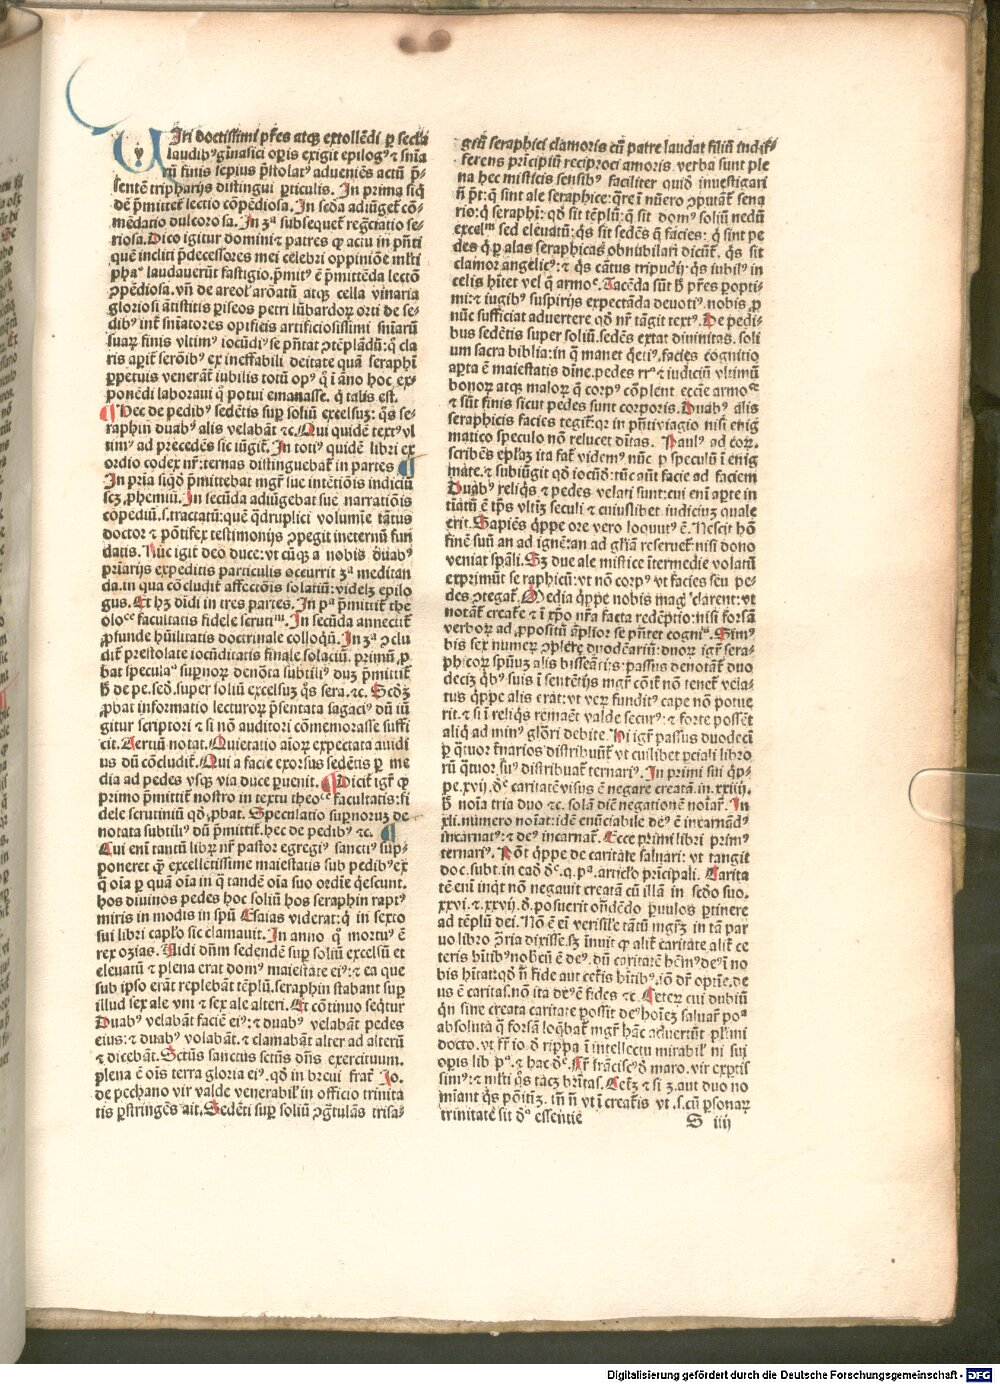 VIri doctissimi pr̃es atqꝫ extollẽdi ꝑ secla
laudibꝰ gῖnasici oꝑis exigit epilogꝰ ⁊ snῖa
rũ finis sepius p̃stolatꝰ adueniẽs actũ p̃-
sentẽ tripharijs distingui ꝑticulis. In prima siq̃
dẽ p̃mittet᷑ lectio cõpẽdiosa. In scd̃a adiũget᷑ cõ-
mẽdatio dulcorosa. In 3ᵃ subsequet᷑ regr̃ciatio se-
riosa. Dico igitur domini ⁊ patres ꝙ actu in pñti
quẽ incliti p̃decessores mei celebri oppiniõe ml̃ti
phaᵃ laudauerũt fastigio. p̃mitꝰ ẽ p̃mittẽda lectõ
ꝯpẽdiosa. vñ de areol᷑ arõatũ atqꝫ cella vinaria
gloriosi ãtistitis ꝑiseos petri lũbardoꝝ orti de se-
dibꝰ int᷑ snῖatores opificis artificiosissimi snῖarũ
suaꝝ finis vltimꝰ iocũdiꝰ se pñtat ꝯtẽplãdũ: q̃ cla
ris aꝑit᷑ serõibꝰ ex ineffabili deitate quã seraphῖ
ꝑpetuis venerãt᷑ iubilis totũ opꝰ q̃ ῖ ãno hoc ex-
ponẽdi laboraui q̃ potui emanasse. q̃ talis est.
¶ Hec de pedibꝰ sedẽtis suꝑ soliũ excelsuꝫ: q̃s se-
raphin duabꝰ alis velabãt ⁊c. Qui quidẽ textꝰ vl
timꝰ ad precedẽs sic iũgit᷑. In totiꝰ quidẽ libri ex
ordio codex nr̃: ternas distinguebat᷑ in partes ¶
In pria siqd̃ẽ p̃mittebat mgr̃ sue intẽtiõis indiciũ
scꝫ ꝓhemiũ. In secũda adiũgebat sue narratiõis
cõpediũ .s. tractatũ: quẽ q̃druplici volumĩe tãtus
doctor ⁊ põtifex testimonijs ꝯpegit incternũ fun
datis. Nũc igit᷑ deo duce: vt cũqꝫ a nobis duabꝰ
primarijs expeditis particulis occurrit 3ᵃ meditan
da. in qua cõcludit᷑ affectõis solatiũ: videlꝫ epilo
gus. Et hꝫ diuidi in tres partes. In pᵃ p̃mittit᷑ the
oloᶜᵉ facultatis fidele scrutiᵐ. In secũda annectit᷑
ꝓfunde hũilitatis doctrinale colloq̃ũ. In 3ᵃ ꝯclu
dit᷑ prestolate iocũditatis finale solaciũ. primũ ꝓ
bat speculaᵒ supnoꝝ denõta subtiliꝰ duꝫ p̃mittit᷑
h̃ de pe. sed̃. super soliũ excelsuꝫ q̃s sera. ⁊c. Scd̃ꝫ
ꝓbat informatio lecturoꝝ p̃sentata sagaciꝰ dũ iũ
gitur scriptori ⁊ si nõ auditori cõmemorasse suffi
cit. Tertiũ notat. Quietatio aĩoꝝ expectata auidi
us dũ cõcludit᷑. Qui a facie exorsus sedẽtis ꝑ me
dia ad pedes vsqꝫ via duce ꝑuenit. ¶ Dicit᷑ igr̃ ꝙ
primo p̃mittit᷑ nostro in textu theoᶜᵉ facultatis: fi
dele scrutiniũ qd̃ ꝓbat. Speculatio supnoruꝫ de
notata subtiliꝰ dũ p̃mittit᷑. hec de pedibꝰ ⁊c. ¶
Qui enῖ tantũ libꝝ nr̃ pastor egregiꝰ sanctiꝰ sup-
poneret ꝙ excellẽtissime maiestatis sub pedibꝰ ex
q̃ oῖa ꝑ quã oῖa in q̃ tandẽ oῖa suo ordῖe q̃escunt.
hos diuinos pedes hoc soliũ hos seraphin raptꝰ
miris in modis in spũ Esaias viderat: q̃ in sexto
sui libri capl̃o sic clamauit. In anno q̃ mortuꝰ ẽ
rex ozias. Uidi dñm sedendẽ suꝑ soliũ excelsũ et
eleuatũ ⁊ plena erat domꝰ maiestate eiꝰ: ⁊ ea que
sub ipso erãt replebãt tẽplũ. seraphin stabant suꝑ
illud sex ale vni ⁊ sex ale alteri. Et cõtinuo seq̃tur
Duabꝰ velabãt faciẽ eiꝰ: ⁊ duabꝰ velabãt pedes
eius: ⁊ duabꝰ volabãt. ⁊ clamabãt alter ad alterũ
⁊ dicebãt. Sctũs sanctus sctũs dñs exercituum.
plena ẽ oῖs terra gloria eiꝰ. qd̃ in breui frat᷑ Jo.
de pechano vir valde venerabil᷑ in officio trinita
tis ꝑstringẽs ait. Sedẽti suꝑ soliũ ꝯgr̃tulãs trisa-
giũ seraphici clamoris cũ patre laudat filiũ indif-
ferens prĩcipiũ reciproci amoris. verba sunt ple
na hec misticis sensibꝰ faciliter quid inuestigari
ñ pt̃: q̃ sint ale seraphice: q̃re ῖ nũero ꝯputãt᷑ sena
rio: q̃ seraphῖ: qd̃ sit tẽplũ: q̃ sit domꝰ soliũ nedũ
excelᵐ sed eleuatũ: q̃s sit sedẽs q̃ facies: q̃ sint pe
des q̃ ꝑ alas seraphicas obnubilari dicũt᷑. q̃s sit
clamor angelicꝰ: ⁊ q̃s cãtus tripudij: q̃s iubilꝰ in
celis hr̃tet vel q̃ armoᶜ. Tacẽda sũt h̃ pr̃es ꝑopti-
mi: ⁊ iugibꝰ suspirijs expectãda deuotiꝰ. nobis ꝓ
nũc sufficiat aduertere qd̃ nr̃ tãgit textꝰ. De pedi-
bus sedẽtis super soliũ. sedẽs extat diuinitas. soli
um sacra biblia: in q̃ manet q̃etiꝰ. facies cõgnitio
aꝑta ẽ maiestatis diῖne. pedes rrᵃ ⁊ iudiciũ vltimũ
bonoꝝ atqꝫ maloꝝ q̃ corpꝰ cõplent eccῖe armoᶜᵉ
⁊ sũt finis sicut pedes sunt corporis. Duabꝰ alis
seraphicis facies tegit᷑: qꝛ in pñti viagio nisi ẽnig
matico speculo nõ relucet diῖtas. Paulꝰ ad coꝝ.
scribẽs epl̃aꝫ ita fat᷑ videmꝰ nũc ꝑ speculũ ῖ enig
mate. ⁊ subiũgit qd̃ iocũdꝰ: tũc aũt facie ad faciem
Duabꝰ reliq̃s ⁊ pedes velati sunt: cui enῖ aꝑte in
tiatũ ẽ tp̃s vltῖꝫ seculi ⁊ cuiuslibet iudiciuꝫ quale
erit. Sapiẽs q̃ppe ore vero loquutꝰ ẽ. Nescit hõ
finẽ suũ an ad ignẽ: an ad gl̃iã reseruet᷑: nisi dono
veniat sp̃ali. Sꝫ due ale mistice ῖtermedie volatũ
exprimũt seraphicũ: vt nõ corpꝰ vt facies seu pe-
des ꝯtegat᷑. Media q̃ppe nobis magꝰ clarent: vt
notãt᷑ create ⁊ ῖ xp̃o nr̃a facta redẽptio: nisi forsã
verboꝝ ad ꝓpositũ ãplior se pñtet cogniᵐ. Simꝰ
bis sex numeꝝ ꝯplere duodẽariũ: duoꝝ igr̃ sera-
phicoꝝ spñuꝫ alis bissẽarijs: passus denotãt᷑ duo
deciꝫ q̃bꝰ suis ῖ sentẽtijs mgr̃ cõit᷑ nõ tenet᷑ vela-
tus q̃ppe alis erat: vt veꝝ funditꝰ cape nõ potue
rit. ⁊ si ῖ reliq̃s remaẽt valde securꝰ: ⁊ forte possẽt
aliq̃ ad minꝰ glõri debite. Hi igr̃ passus duodecĩ
ꝑ q̃tuor t̃narios distribuũt᷑ vt cuilibet ꝑciali libro
rũ q̃tuor suꝰ distribuat᷑ ternariꝰ. In primi sui q̃p-
pe. xvij. dᵉ caritatẽ visus ẽ negare creatã. in. xxiiij.
h̃ noῖa tria duo ⁊c. solã diẽ negationẽ noῖat᷑. In
xli. numero noῖat: idẽ enũciabile deꝰ ẽ incarnãdꝰ
incarnatꝰ: ⁊ deꝰ incarnat᷑. Ecce primi libri primꝰ
ternariꝰ. Põt q̃ppe de caritãte saluari: vt tangit
doc. subt. in eãd dᶜ. q. pᵃ. articl̃o prĩcipali. Carita
tẽ enῖ inq̃t nõ negauit creatã cũ illã in scd̃o suo.
xxvi. ⁊. xxvij. d. posuerit oñdẽdo ꝑuulos ꝑtinere
ad tẽplũ dei. Nõ ẽ eῖ verisil᷑e tãtũ mgr̃ꝫ in tã par
uo libro ꝯtraria dixisse. sꝫ ῖnuit ꝙ alit᷑ caritate alit᷑ ce
teris hr̃tibꝰ nobcũ ẽ deꝰ. dũ caritatẽ hẽmꝰ deꝰ ῖ no
bis hr̃tat: qd̃ ñ fide aut cet᷑is hr̃tibꝰ. iõ dr̃ optῖe. de
us ẽ caritas. nõ ita deꝰ ẽ fides ⁊c. Ceteꝝ cui dubiũ
q̃n sine creata caritate possit deꝰ hoῖeꝫ saluar᷑ poᵃ
absoluta q̃ forsã loq̃bat᷑ mgr̃ hãc aduertũt pl̃imi
docto. vt fr̃ io. d rippa ῖ intellectu mirabil᷑ ni sui
oꝑis lib pᵒ. ⁊ hac dᶜ. Fr̃ frãciscꝰ d maro. vir exꝑtis
simꝰ: ⁊ ml̃ti q̃s taceꝫ br̃uitas. Cetꝫ ⁊ si 3. aut duo no
mῖant q̃s põitꝫ. ῖñ ñ vt ῖ creat᷑is vt .s. cũ ꝑsonaꝝ
trinitate sit dᵒ essentie
S iiij
Digitalisierung gefördert durch die Deutsche Forschungsgemeinschaft - DFG